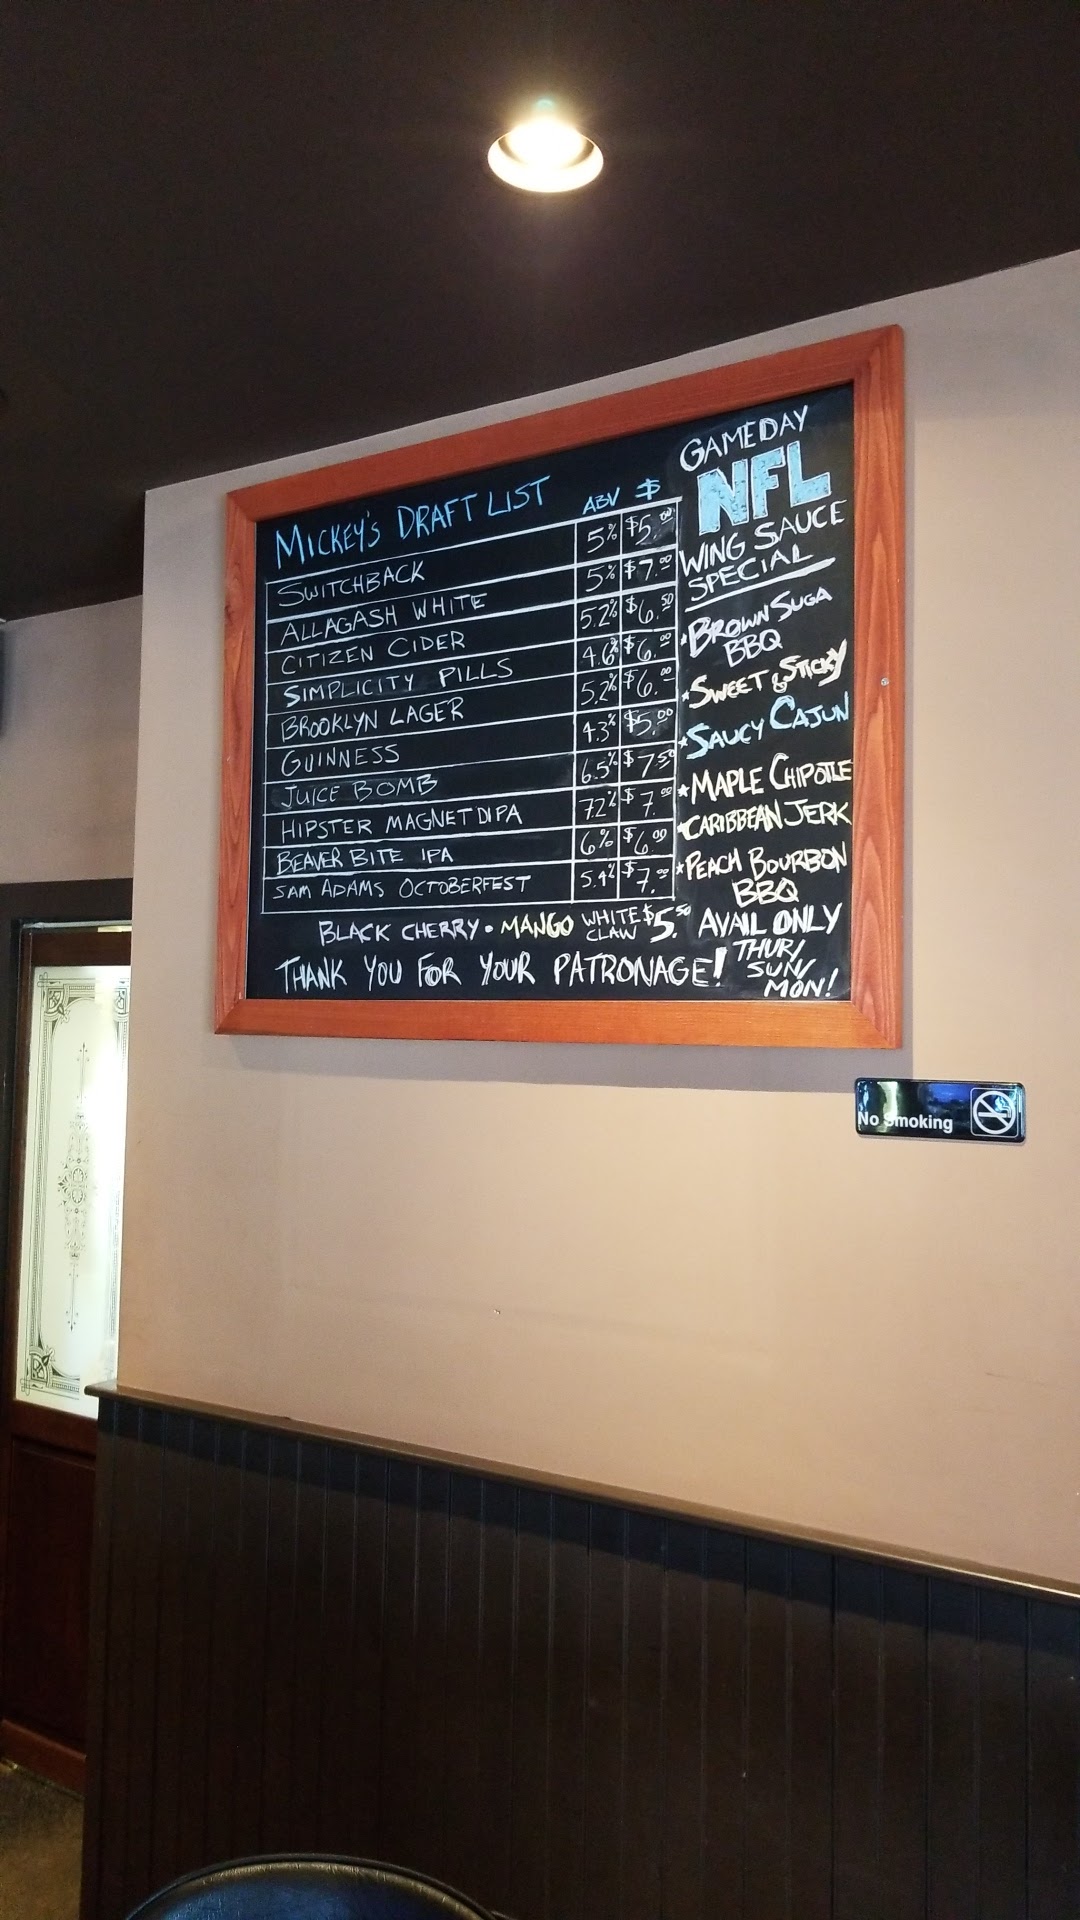 MICKEY'S DRAFT LIST ABV $
SWITCHBACK 5% $5.00
ALLAGASH WHITE 5% $7.00
CITIZEN CIDER 5.2% $6.50
SIMPLICITY PILLS 4.6% $6.00
BROOKLYN LAGER 5.2% $6.00
GUINNESS 4.3% $5.00
JUICE BOMB 6.5% $7.50
HIPSTER MAGNET DIPA 7.2% $7.00
BEAVER BITE IPA 6% $6.00
SAM ADAMS OCTOBERFEST 5.4% $7.00
BLACK CHERRY • MANGO WHITE CLAW $5.50
THANK YOU FOR YOUR PATRONAGE!
GAMEDAY
NFL
WING SAUCE
SPECIAL
*BROWN SUGA
BBQ
*SWEET & STICKY
*SAUCY CAJUN
*MAPLE CHIPOTLE
*CARIBBEAN JERK
*PEACH BOURBON
BBQ
AVAIL ONLY
THUR/
SUN/
MON!
No Smoking